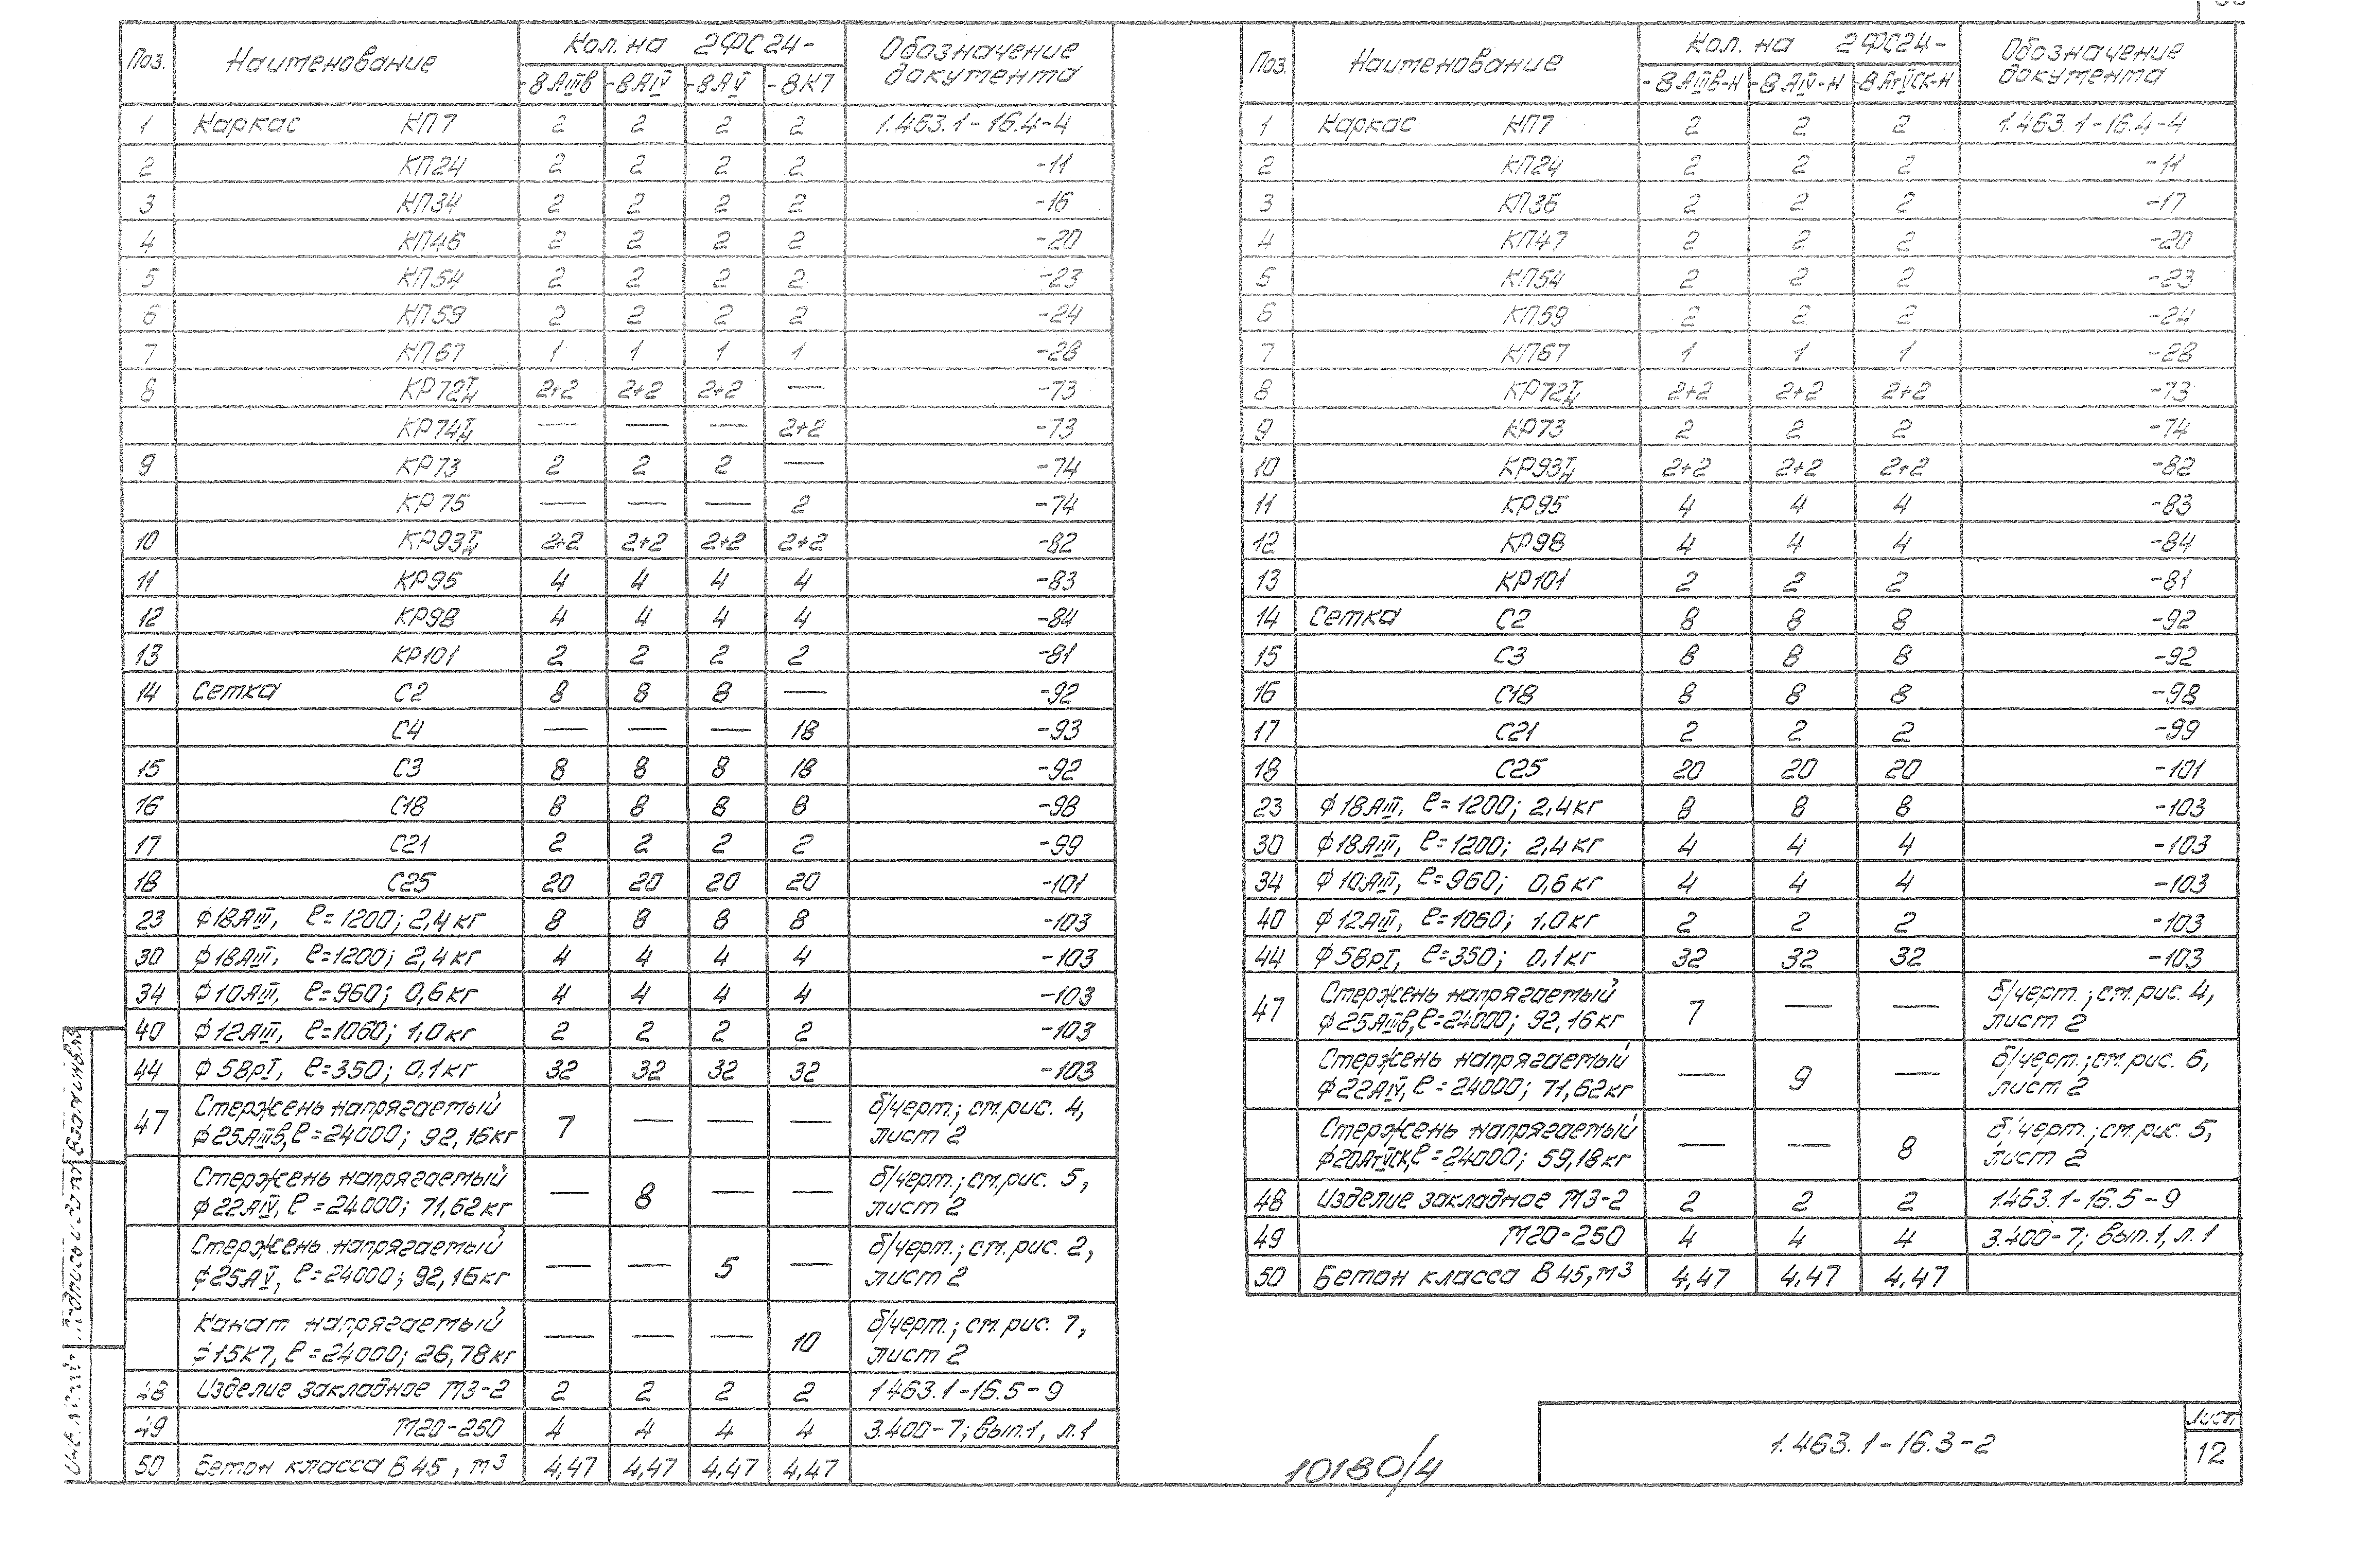 Поз. Наименование Кол. на 2ФС24- Обозначение документа
-8АIIIв -8АIV -8АV -8К7
1 Каркас КП7 2 2 2 2 1.463.1-16.4-4
2 КП24 2 2 2 2 -11
3 КП34 2 2 2 2 -16
4 КП46 2 2 2 2 -20
5 КП54 2 2 2 2 -23
6 КП59 2 2 2 2 -24
7 КП67 1 1 1 1 -28
8 КР72Т/Н 2+2 2+2 2+2 — -73
КР74Т/Н — — — 2+2 -73
9 КР73 2 2 2 — -74
КР75 — — — 2 -74
10 КР93Т/Н 2+2 2+2 2+2 2+2 -82
11 КР95 4 4 4 4 -83
12 КР98 4 4 4 4 -84
13 КР101 2 2 2 2 -81
14 Сетка С2 8 8 8 — -92
С4 — — — 18 -93
15 С3 8 8 8 18 -92
16 С18 8 8 8 8 -98
17 С21 2 2 2 2 -99
18 С25 20 20 20 20 -101
23 ф18АIII, ℓ=1200; 2,4кг 8 8 8 8 -103
30 ф18АIII, ℓ=1200; 2,4кг 4 4 4 4 -103
34 ф10АIII, ℓ=960; 0,6кг 4 4 4 4 -103
40 ф12АIII, ℓ=1060; 1,0кг 2 2 2 2 -103
44 ф5ВрI, ℓ=350; 0,1кг 32 32 32 32 -103
47 Стержень напрягаемый 7 — — — б/черт.; см.рис. 4,
ф25АIIIв, ℓ=24000; 92,16кг лист 2
Стержень напрягаемый — 8 — — б/черт.; см.рис. 5,
ф22АIV, ℓ=24000; 71,62кг лист 2
Стержень напрягаемый — — 5 — б/черт.; см.рис. 2,
ф25АV, ℓ=24000; 92,16кг лист 2
Канат напрягаемый — — — 10 б/черт.; см.рис. 7,
ф15К7, ℓ=24000; 26,78кг лист 2
48 Изделие закладное М3-2 2 2 2 2 1463.1-16.5-9
49 М20-250 4 4 4 4 3.400-7; вып.1, л.1
50 Бетон класса В45, м3 4,47 4,47 4,47 4,47
Поз. Наименование Кол. на 2ФС24- Обозначение документа
-8АIIIв-Н -8АIV-Н -8АтVСК-Н
1 Каркас КП7 2 2 2 1.463.1-16.4-4
2 КП24 2 2 2 -11
3 КП36 2 2 2 -17
4 КП47 2 2 2 -20
5 КП54 2 2 2 -23
6 КП59 2 2 2 -24
7 КП67 1 1 1 -28
8 КР72Т/Н 2+2 2+2 2+2 -73
9 КР73 2 2 2 -74
10 КР93Т/Н 2+2 2+2 2+2 -82
11 КР95 4 4 4 -83
12 КР98 4 4 4 -84
13 КР101 2 2 2 -81
14 Сетка С2 8 8 8 -92
15 С3 8 8 8 -92
16 С18 8 8 8 -98
17 С21 2 2 2 -99
18 С25 20 20 20 -101
23 ф18АIII, ℓ=1200; 2,4кг 8 8 8 -103
30 ф18АIII, ℓ=1200; 2,4кг 4 4 4 -103
34 ф10АIII, ℓ=960; 0,6кг 4 4 4 -103
40 ф12АIII, ℓ=1060; 1,0кг 2 2 2 -103
44 ф5ВрI, ℓ=350; 0,1кг 32 32 32 -103
47 Стержень напрягаемый 7 — — б/черт.; см.рис. 4,
ф25АIIIв, ℓ=24000; 92,16кг лист 2
Стержень напрягаемый — 9 — б/черт.; см.рис. 6,
ф22АIV, ℓ=24000; 71,62кг лист 2
Стержень напрягаемый — — 8 б/черт.; см.рис. 5,
ф20АтVСК, ℓ=24000; 59,18кг лист 2
48 Изделие закладное М3-2 2 2 2 1.463.1-16.5-9
49 М20-250 4 4 4 3.400-7; вып.1, л.1
50 Бетон класса В45, м3 4,47 4,47 4,47
10180/4
1.463.1-16.3-2
Лист
12
Подпись и дата